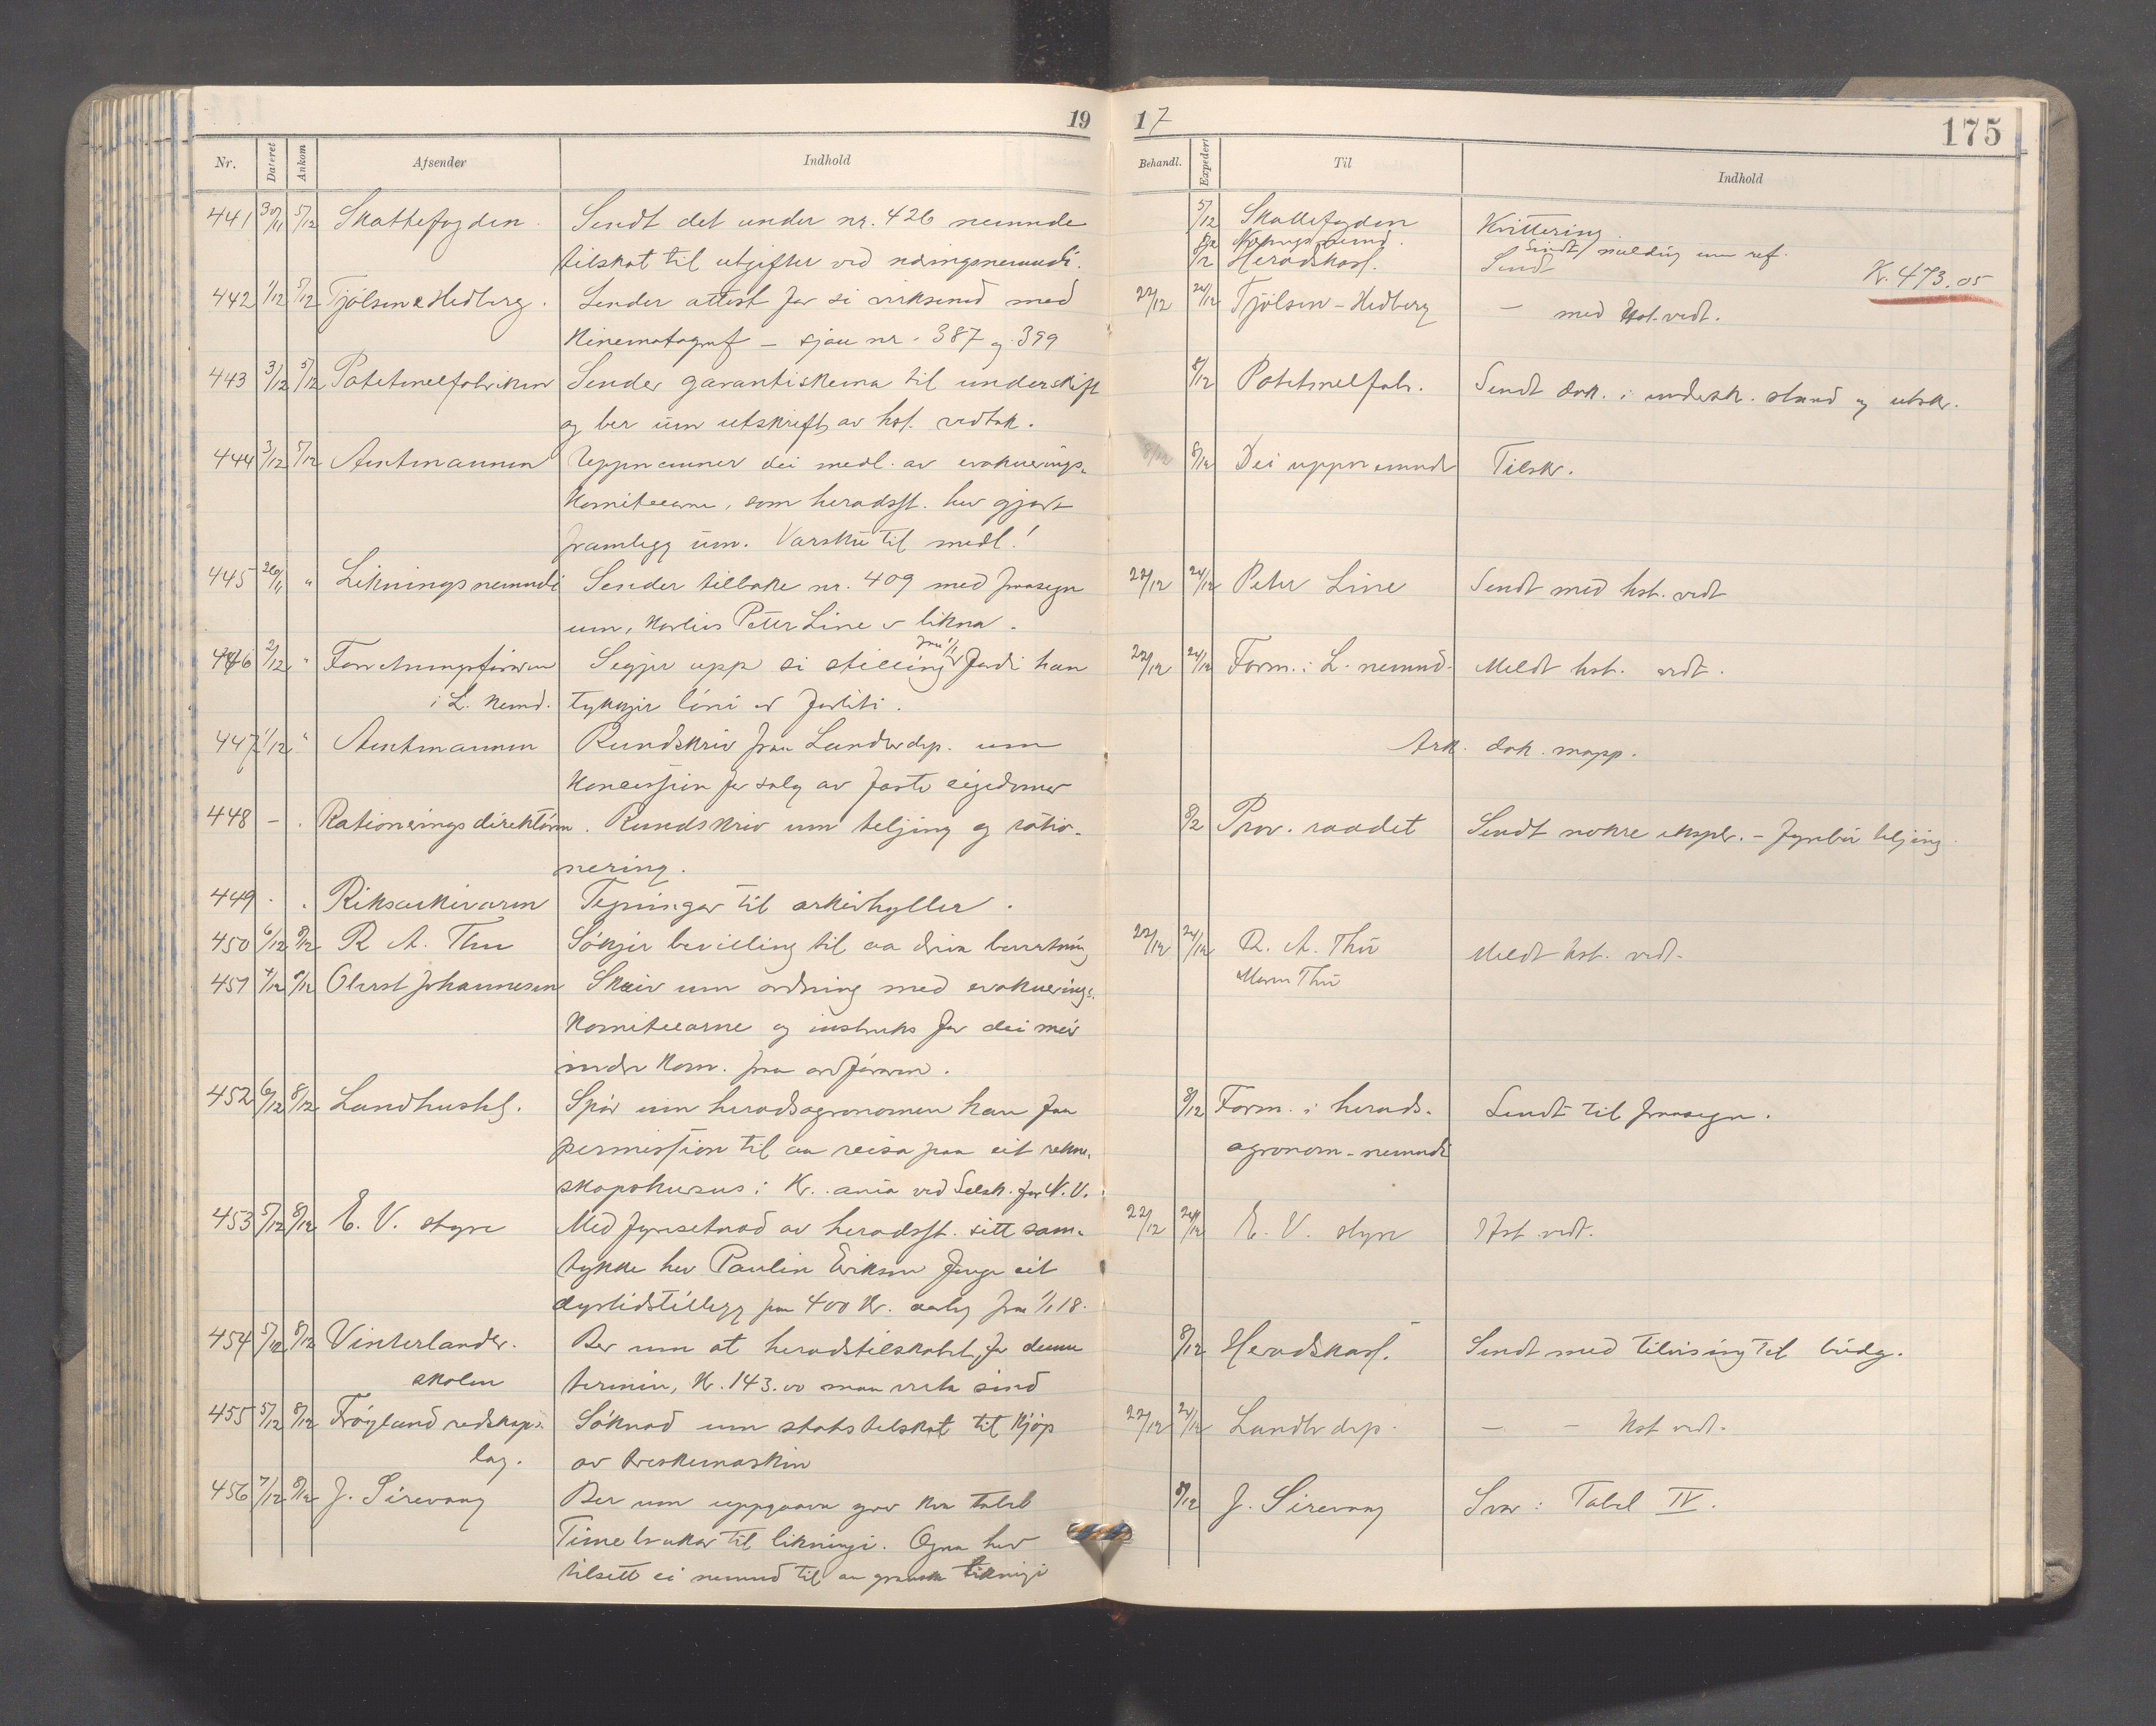 19
17
175
Nr.
Dateret
Ankom
Afsender
Indhold
Behandl.
Expedert
Til
Indhold
441 30/11 5/12 Skattefogden. Sendt det under nr. 426 nemnde
tilskot til utgifter ved næringsnemndi.
5/12 Skattefogden Kvittering
8/12 Sendt melding um ref.
8/12 Heradskass. Sendt
Kr. 473.05
442 1/12 5/12 Tjölsen & Hedberg. Sender attest for si verksemd med
Kinematograf – sjaa nr. 387 og 399
22/12 24/12 Tjölsen – Hedberg — med hst. vedt.
443 3/12 5/12 Potetmelfabriken Sender garantiskema til underskrift
og ber um utskrift av hst. vedtak.
8/12 Potetmelfabr. Sendt dok. i undersk. stand og utskr.
444 3/12 5/12 Amtmannen Uppnemner dei medl. av evakuerings-
komiteearne, som heradsst. hev gjort
framlegg um. Varsku til medl!
8/12 8/12 Dei uppnemnde Tilskr.
445 26/11 " Likningsnemndi Sender tilbake nr. 409 med fraasegn
um, korleis Peter Line er likna.
22/12 24/12 Peter Line Sendt med hst. vedt
446 2/12 " Forretningsföraren
i L. nemd.
Segjer upp si stilling fraa 1/1 fordi han
tykkjer löni er for liti.
22/12 24/12 Form. i L. nemnd. Meldt hst. vedt.
447 1/12 " Amtmannen Rundskriv fraa Landbrdep. um
Koncession for salg av faste eigedomar
Ark. dok. mapp.
448 – . Rationeringsdirektören. Rundskriv um teljing og ratio-
nering.
8/12 Prov. raadet Sendt nokre expl. – fyrebur teljing.
449 . . Riksarkivaren Tepningar til arkivhyller.
450 6/12 8/12 R. A. Thu Sökjer bevilling til aa driva beverting
22/12 24/12 R. A. Thu Meldt hst. vedt.
Maren Thu
451 4/12 8/12 Olverst Johannesen Skriv um ordning med evakuerings-
komiteearne og instruks for dei med
indre kom. fraa ordföraren.
452 6/12 8/12 Landhushs. Spör um heradsagronomen kan faa
permission til aa reisa paa eit rekne-
skapskursus i Kr.ania ved Selsk. for N. V.
8/12 Form. i herads-
agronom-nemndi
Sendt til fraasegn.
453 5/12 8/12 E. V. styre Med fyresetnad av heradsst. sitt sam-
tykke hev Paulin Erikson fenge eit
dyrtidstillegg paa 400 kr. aarleg fraa 1/1 18.
22/12 24/12 E. V. styre Hst. vedt.
454 5/12 8/12 Vinterlandbr.
skolen
Ber um at heradstilskotet for denne
termin, kr. 143.00 maa verta send
8/12 Heradskass. Sendt med tilvising til budg.
455 5/12 8/12 Fröyland redskaps-
lag.
Söknad um statstilskot til kjöp
av treskemaskin
22/12 24/12 Landbr dep. — – hst vedt.
456 7/12 8/12 J. Sirevaag Ber um uppgaava yver kva tabel
Time brukar til likningi. Ogna hev
tilsett ei nemnd til aa granska likningi
8/12 J. Sirevaag Svar: Tabel IV.